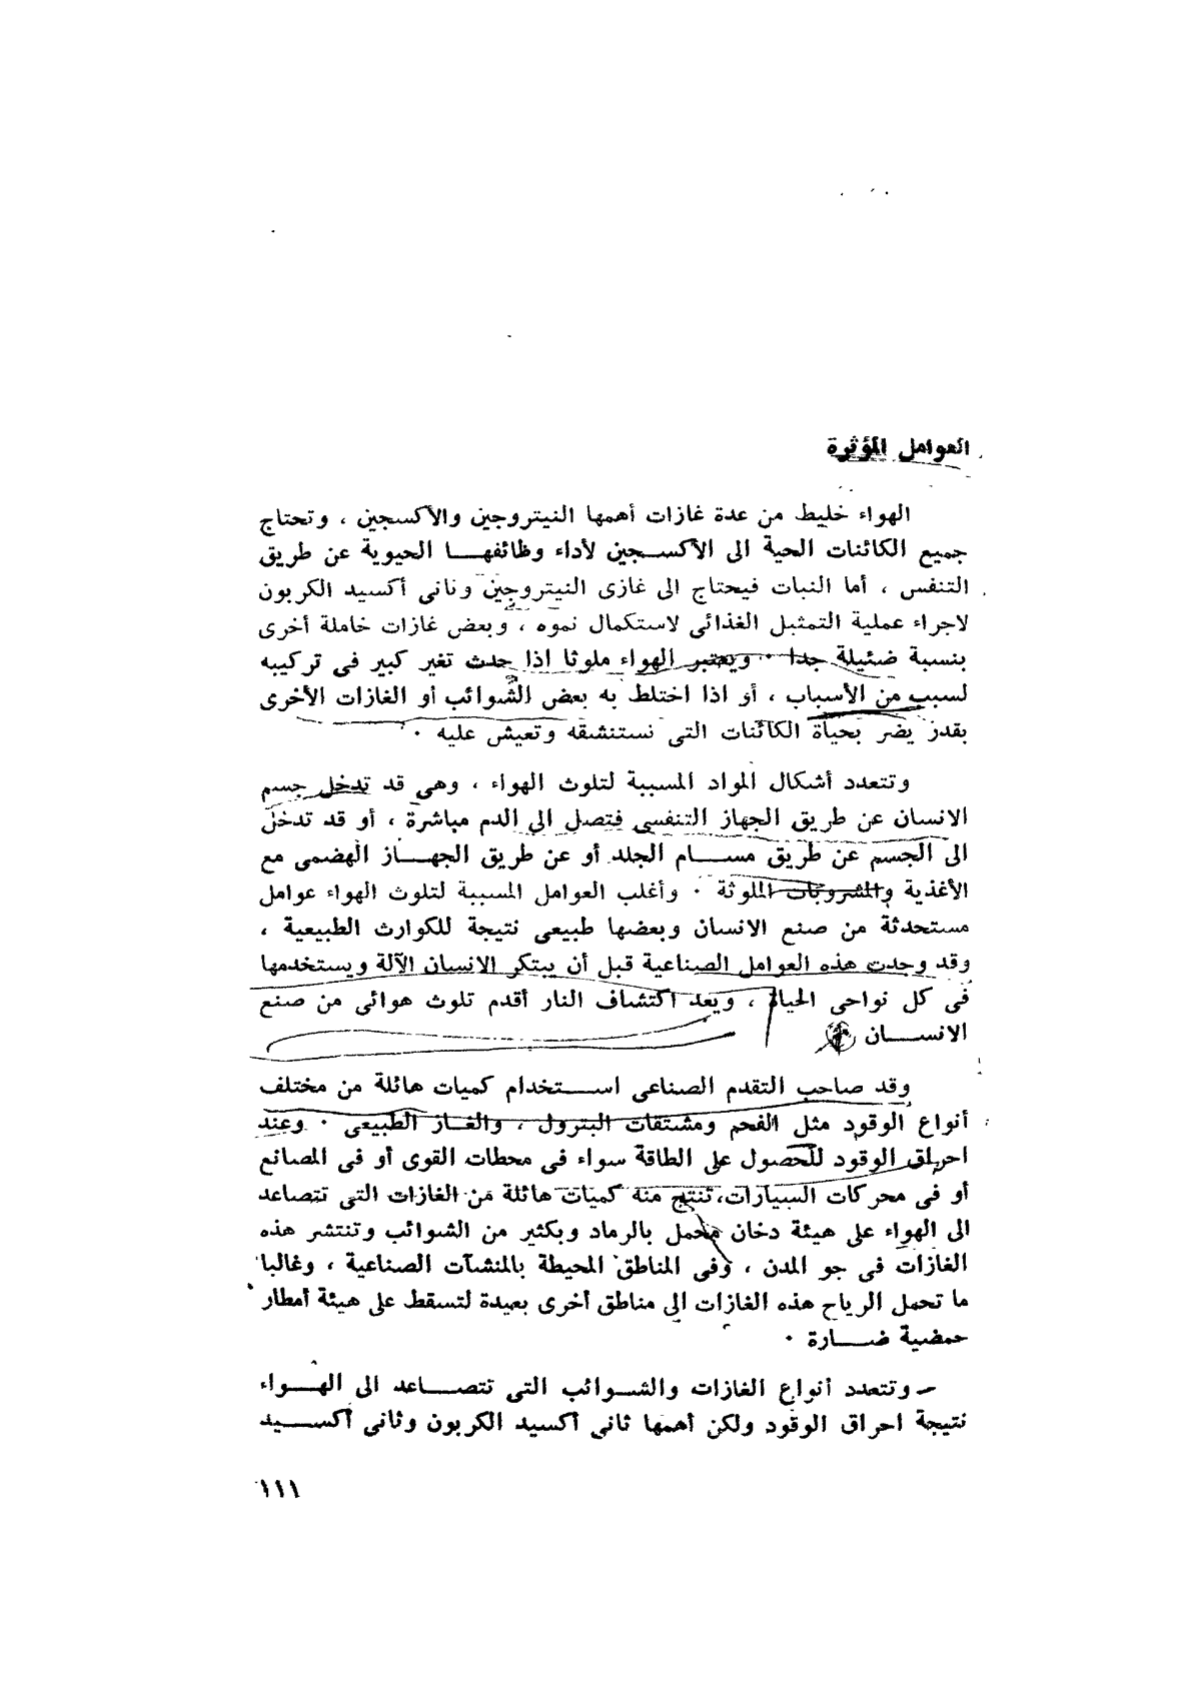 العوامل المؤثرة
الهواء خليط من عدة غازات أهمها النيتروجين والأكسجين ، وتحتاج
جميع الكائنات الحية الى الأكسجين لأداء وظائفها الحيوية عن طريق
التنفس ، أما النبات فيحتاج الى غازى النيتروجين وثانى أكسيد الكربون
لاجراء عملية التمثيل الغذائى لاستكمال نموه ، وبعض غازات خاملة أخرى
بنسبة ضئيلة جدا . ويعتبر الهواء ملوثا اذا حدث تغير كبير فى تركيبه
لسبب من الأسباب ، أو اذا اختلط به بعض الشوائب أو الغازات الأخرى
بقدر يضر بحياة الكائنات التى تستنشقه وتعيش عليه .
وتتعدد أشكال المواد المسببة لتلوث الهواء ، وهى قد تدخل جسم
الانسان عن طريق الجهاز التنفسى فتصل الى الدم مباشرة ، أو قد تدخل
الى الجسم عن طريق مسام الجلد أو عن طريق الجهاز الهضمى مع
الأغذية والمشروبات الملوثة . وأغلب العوامل المسببة لتلوث الهواء عوامل
مستحدثة من صنع الانسان وبعضها طبيعى نتيجة للكوارث الطبيعية ،
وقد وجدت هذه العوامل الصناعية قبل أن يبتكر الانسان الآلة ويستخدمها
فى كل نواحى الحياة ، ويعد اكتشاف النار أقدم تلوث هوائى من صنع
الانسان
وقد صاحب التقدم الصناعى استخدام كميات هائلة من مختلف
أنواع الوقود مثل الفحم ومشتقات البترول ، والغاز الطبيعى . وعند
احراق الوقود للحصول على الطاقة سواء فى محطات القوى أو فى المصانع
أو فى محركات السيارات، تنتج منه كميات هائلة من الغازات التى تتصاعد
الى الهواء على هيئة دخان محمل بالرماد وبكثير من الشوائب وتنتشر هذه
الغازات فى جو المدن ، وفى المناطق المحيطة بالمنشآت الصناعية ، وغالبا
ما تحمل الرياح هذه الغازات الى مناطق أخرى بعيدة لتسقط على هيئة أمطار
حمضية ضارة .
– وتتعدد أنواع الغازات والشوائب التى تتصاعد الى الهواء
نتيجة احراق الوقود ولكن أهمها ثانى أكسيد الكربون وثانى أكسيد
١١١